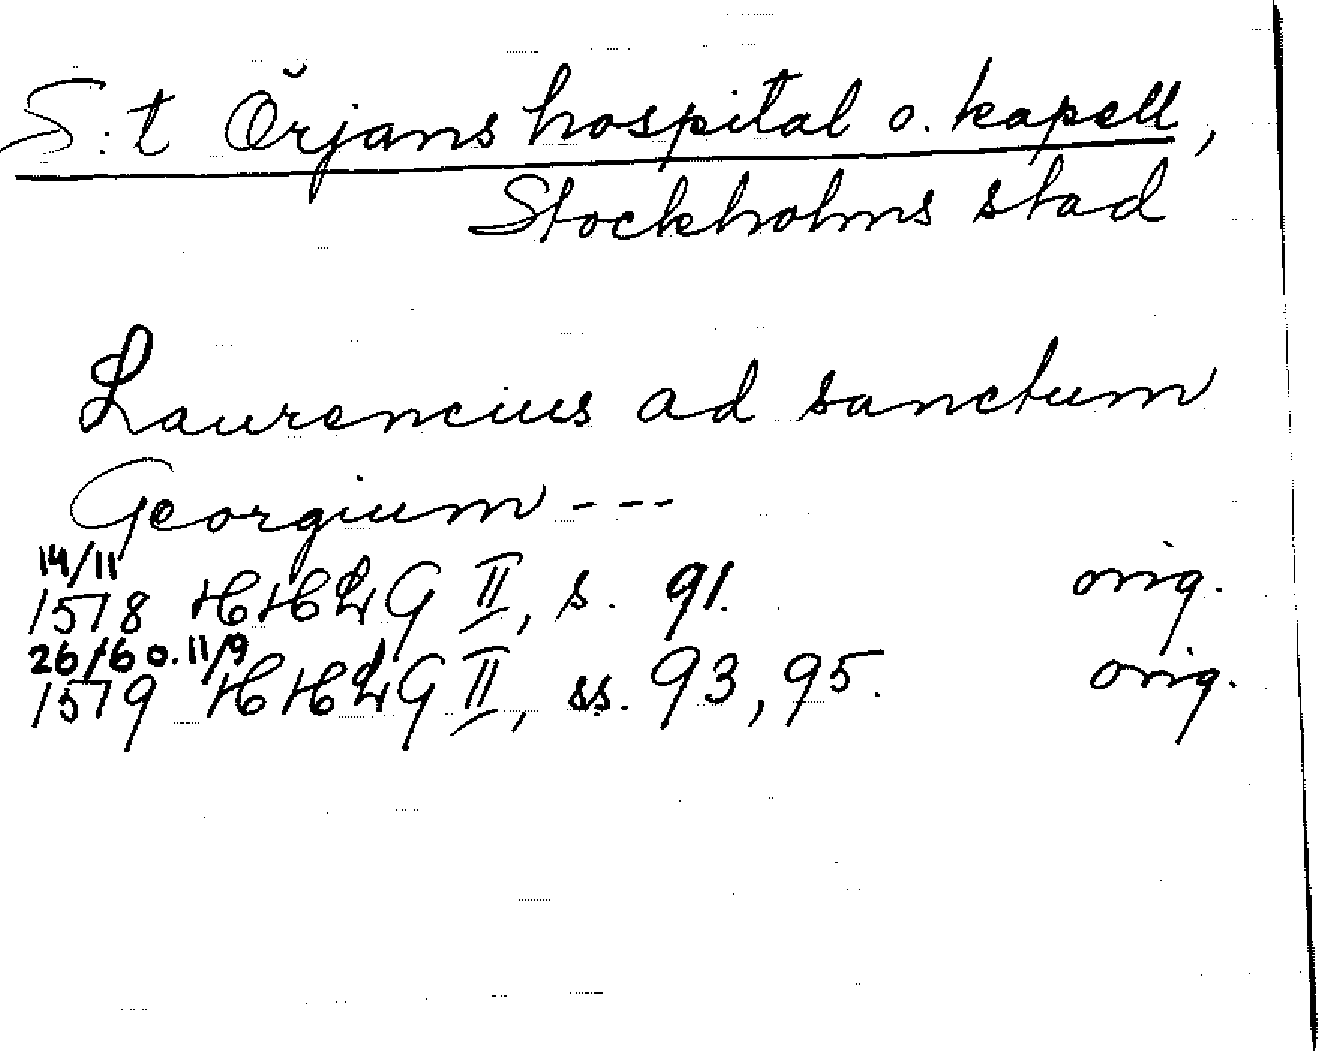 S:t Örjans hospital o. kapell,
Stockholms stad
Laurencius ad sanctum
Georgium ---
14/11
1578 HHLG II, s. 91. orig.
26/6 o. 11/9
1579 HHLG II, ss. 93, 95. orig.